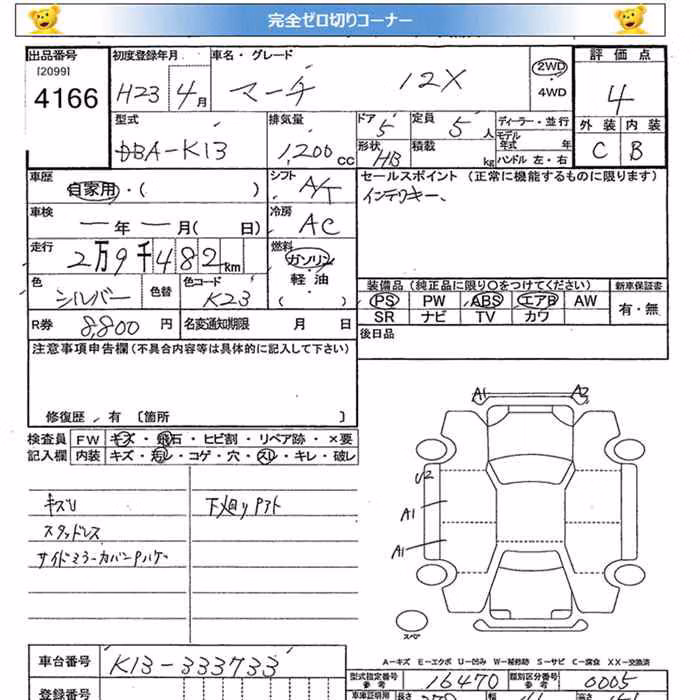 完全ゼロ切りコーナー
出品番号 初度登録年月 車名・グレード 評価点
[2099] 4166 H23 4月 マーチ 12X 2WD 4WD 4
外装 内装
C B
型式 排気量 ドア 定員 ディーラー・並行
DBA-K13 1,200cc 5 5人 モデル年式 年
形状 HB 積載 kg ハンドル 左・右
車歴 シフト セールスポイント (正常に機能するものに限ります)
自家用・( ) A/T インテリキー、
車検 冷房
ー年ー月( 日) AC
走行 燃料
2万9千482km ガソリン
軽油
( )
色 色替 色コード 装備品 (純正品に限り○をつけてください) 新車保証書
シルバー K23 PS PW ABS エアB AW 有・無
SR ナビ TV カワ
R券 8,800円 名変通知期限 月 日 後日品
注意事項申告欄(不具合内容等は具体的に記入して下さい)
修復歴 有 〔箇所 〕
検査員 FW キズ・飛石・ヒビ割・リペア跡・×要
記入欄 内装 キズ・汚レ・コゲ・穴・スレ・キレ・破レ
A1 A2
U2
A1
A1
キズU 下廻りサビト
スタッドレス
サイドミラーカバーPハゲ
スペア
A-キズ E-エクボ U-凹み W-補修跡 S-サビ C-腐食 XX-交換済
車台番号 K13-333733
型式指定番号 参考 16470 類別区分番号 参考 0005
登録番号
車庫証明用 長さ 幅 高さ